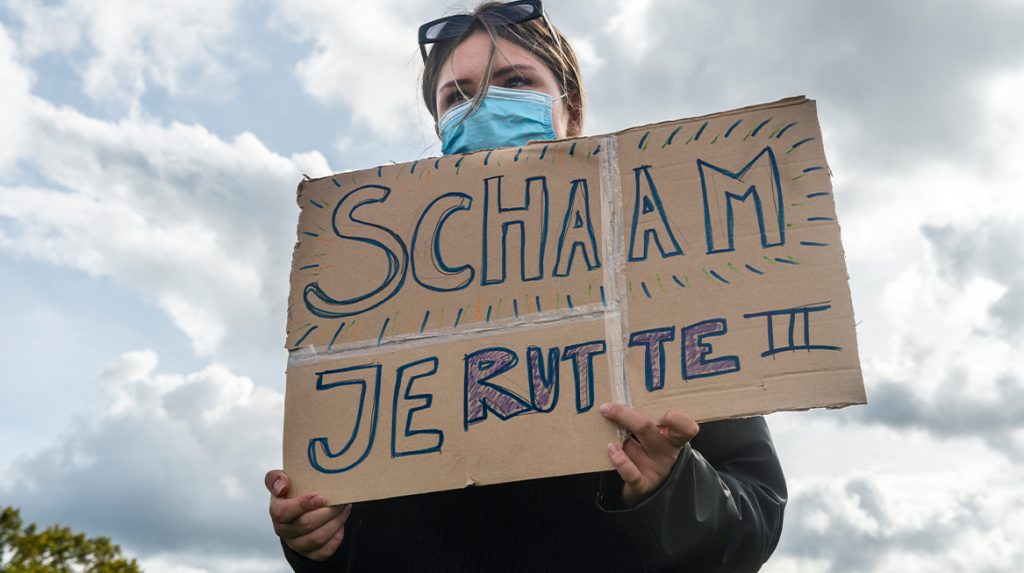 SCHAAM
JE RUTTE III